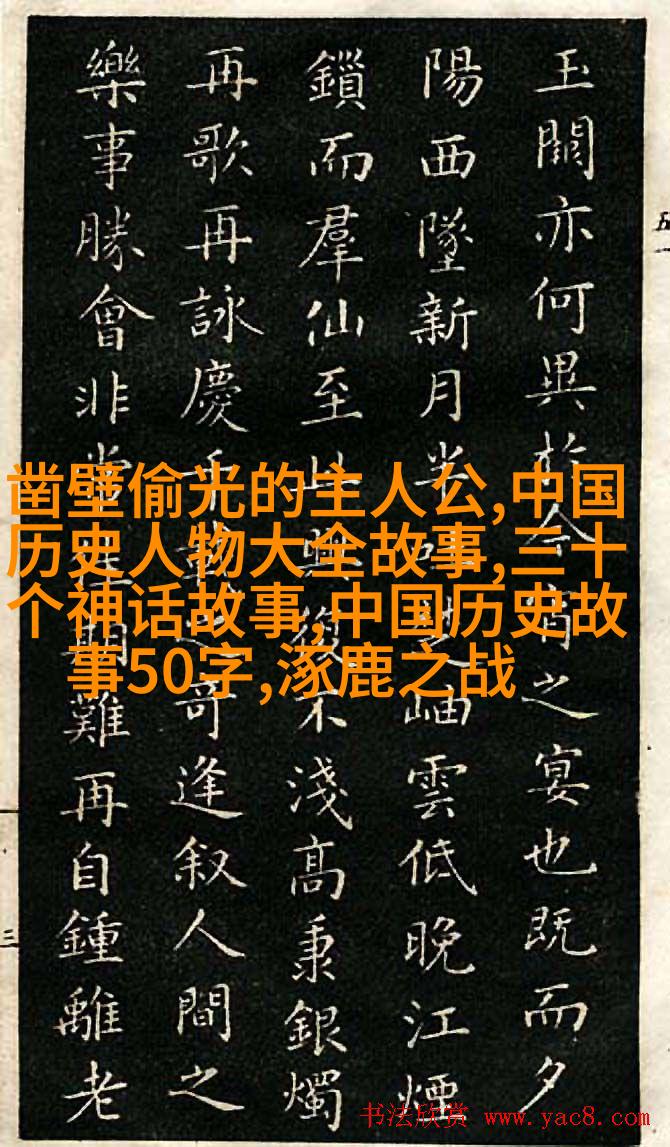 玉闕亦何異於今宵之宴也既而夕
陽西墜新月半岫雲低晚江煙
鎖而羣仙至興復不淺高秉銀燭
再歌再詠慶千載之奇逢叙人間之
樂事勝會非常佳期難再自鍾離老
凿壁偷光的主人公,中国
历史人物大全故事,三十
个神话故事,中国历史故
事50字,涿鹿之战
书法欣赏 www.yac8.com